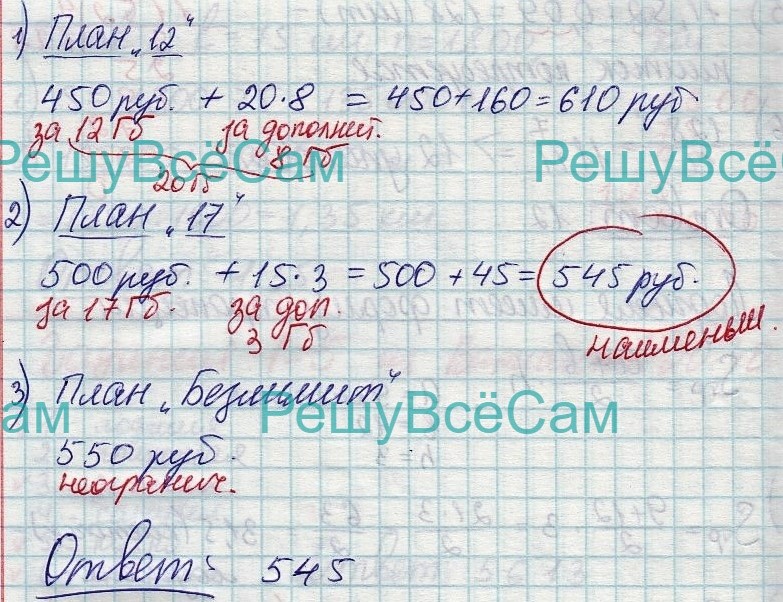 1) План „12“
450 руб. + 20·8 = 450+160=610 руб
за 12 Гб за дополнит. 8 Гб
РешуВсёСам РешуВсё
20 Гб
2) План „17“
500 руб. + 15·3 = 500 + 45= 545 руб.
за 17 Гб. за доп. 3 Гб
наименьш.
3) План „Безлимит“
ам РешуВсёСам
550 руб.
неогранич.
Ответ: 545